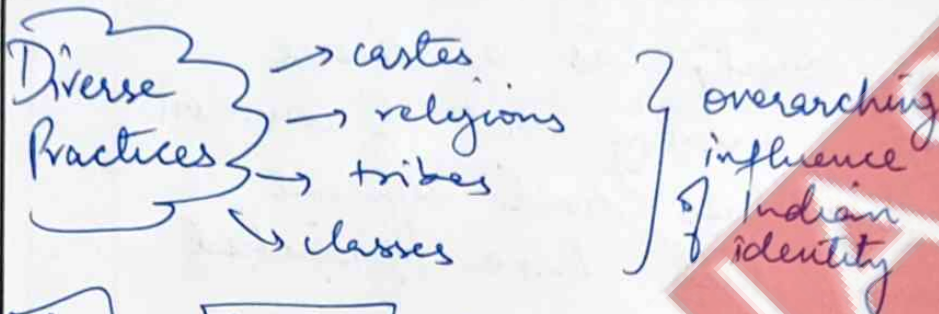 Diverse
Practices
→ castes
→ religions
→ tribes
→ classes
overarching
influence
of Indian
identity